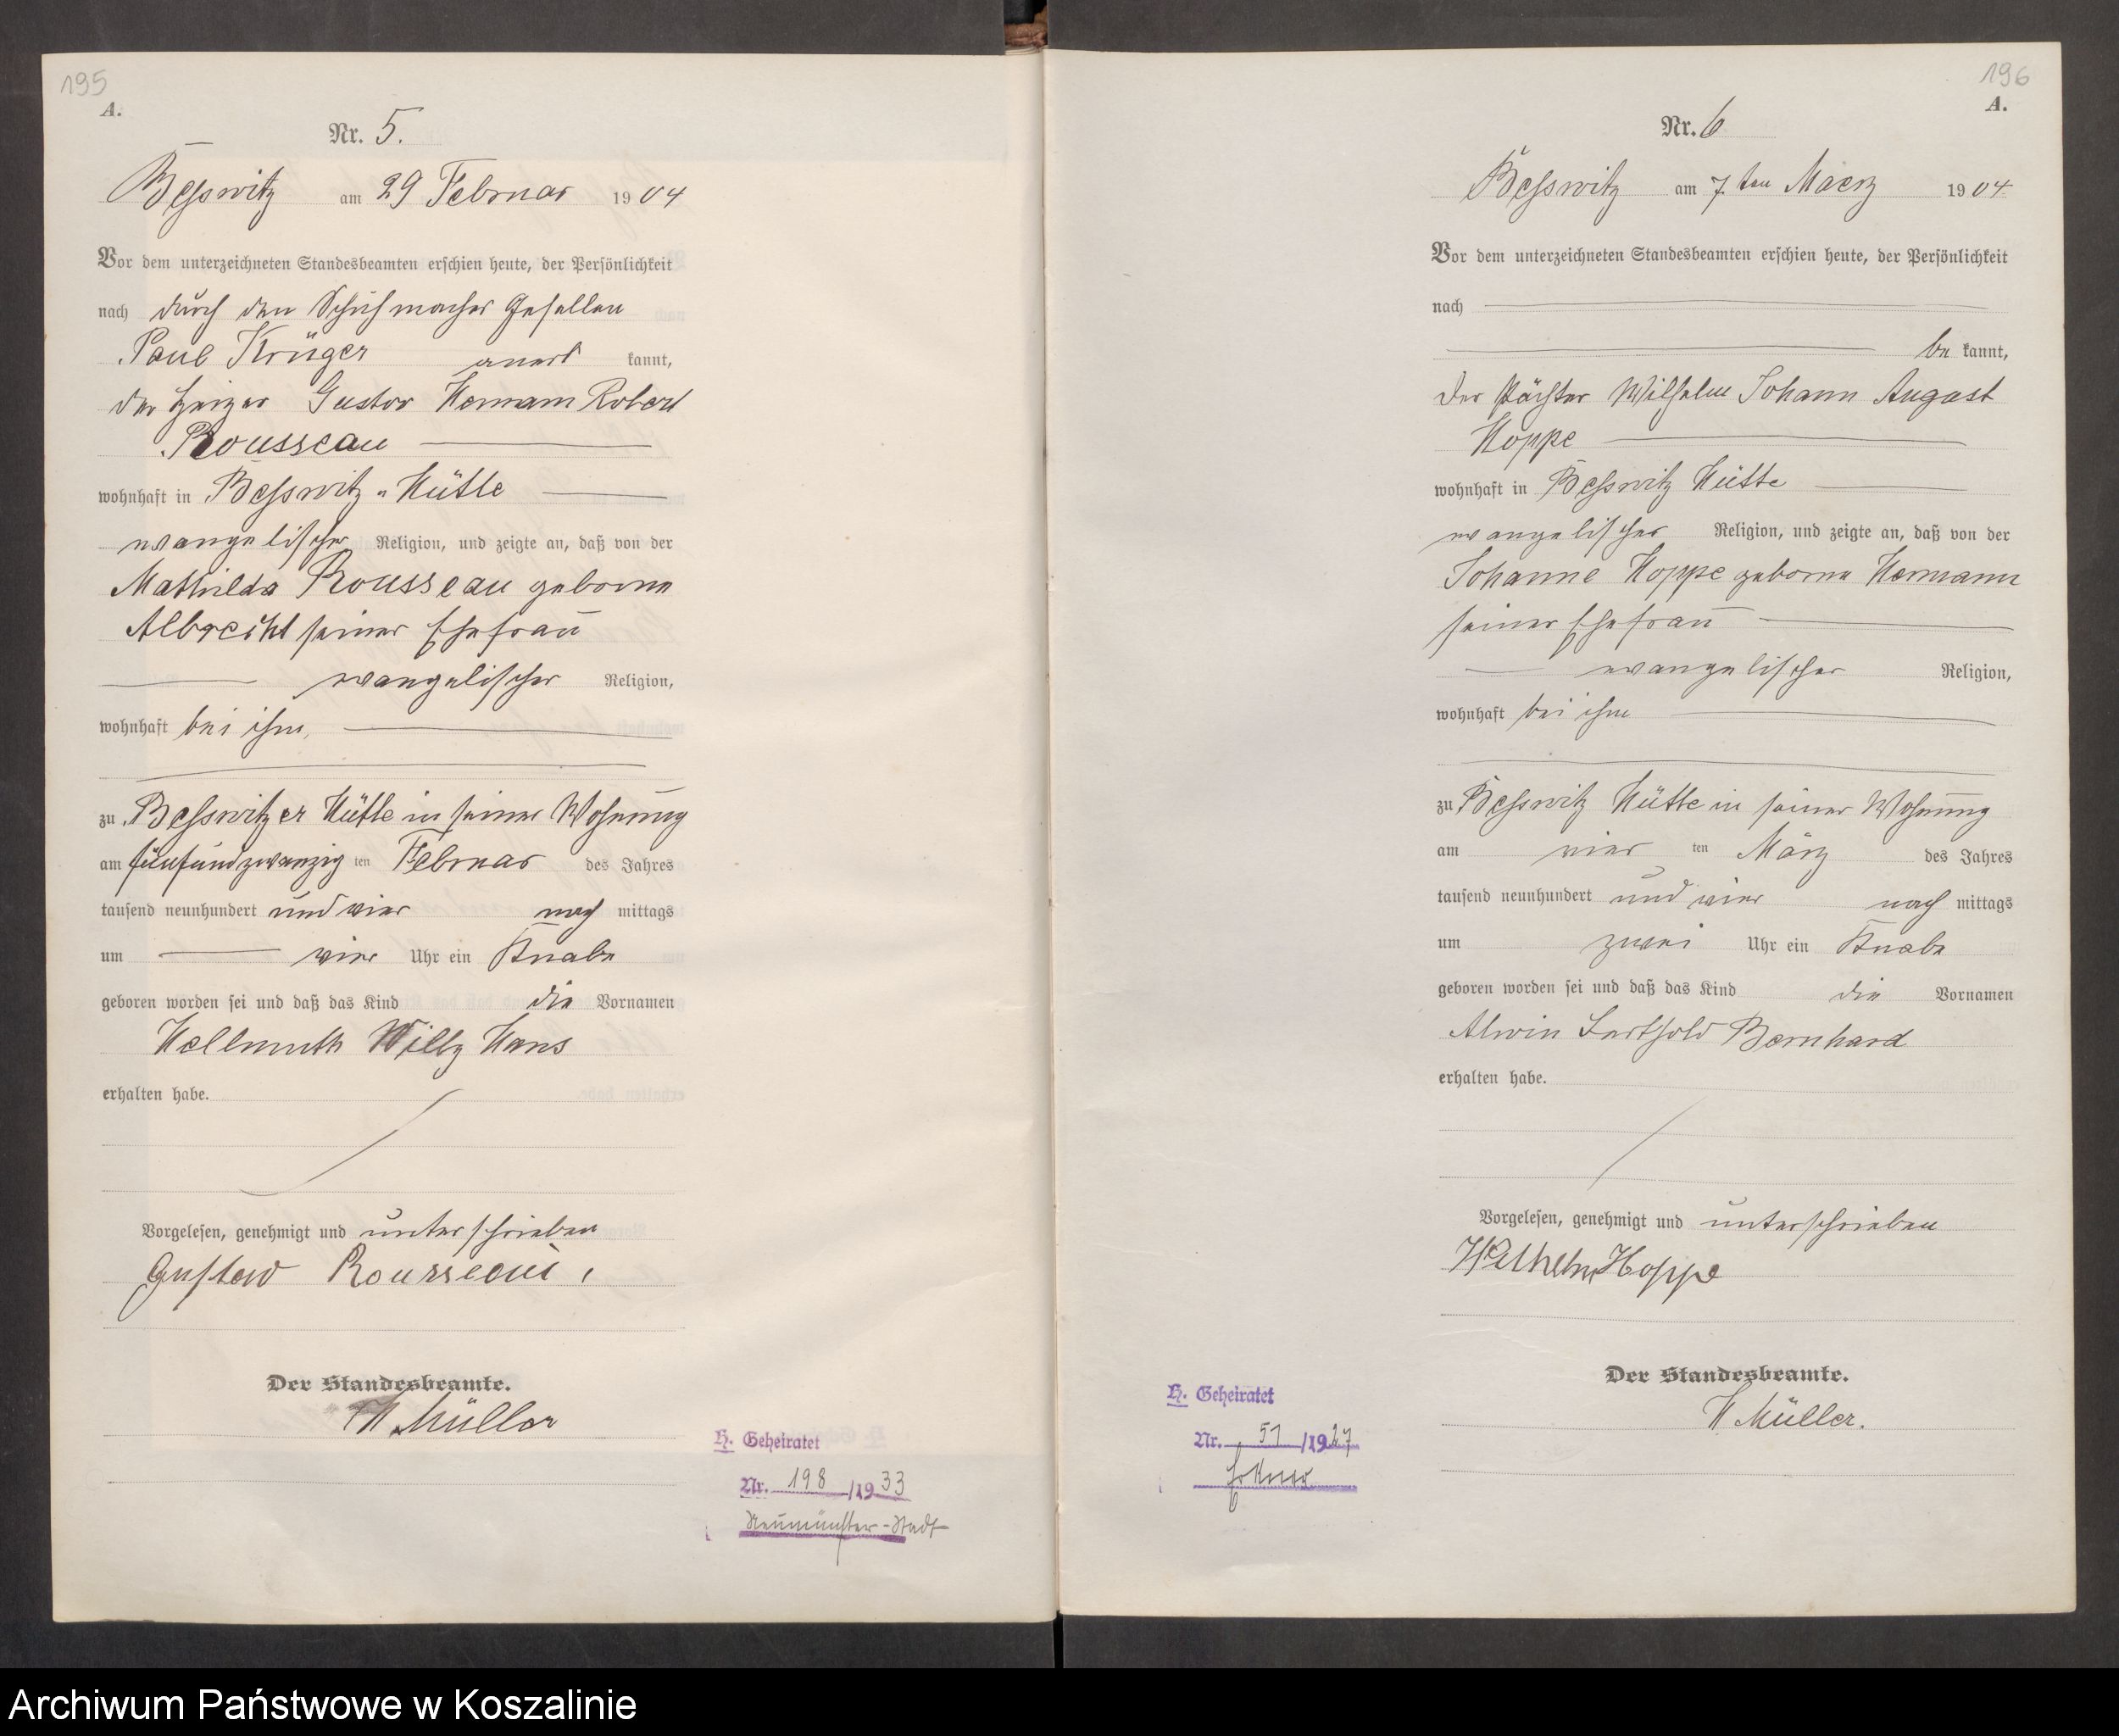 195
A.
Nr. 5.
Besswitz am 29 Februar 1904
Vor dem unterzeichneten Standesbeamten erschien heute, der Persönlichkeit
nach durch den Schuhmacher Gesellen
Paul Krüger anerkannt,
der Heizer Gustav Hermann Robert
Rousseau
wohnhaft in Besswitz-Hütte
evangelischer Religion, und zeigte an, daß von der
Mathilda Rousseau geborne
Albrecht seiner Ehefrau
evangelischer Religion,
wohnhaft bei ihm,
zu Besswitzer Hütte in seiner Wohnung
am fünfundzwanzig ten Februar des Jahres
tausend neunhundert und vier nach mittags
um vier Uhr ein Knabe
geboren worden sei und daß das Kind die Vornamen
Hellmuth Willy Hans
erhalten habe.
Vorgelesen, genehmigt und unterschrieben
Gustav Rousseau,
Der Standesbeamte.
H Müller
H. Geheiratet
Nr. 198/1933
Neumünster-Stadt
196
A.
Nr. 6
Besswitz am 7ten Maerz 1904
Vor dem unterzeichneten Standesbeamten erschien heute, der Persönlichkeit
nach
be kannt,
der Pächter Wilhelm Johann August
Hoppe
wohnhaft in Besswitz Hütte
evangelischer Religion, und zeigte an, daß von der
Johanne Hoppe geborne Hermann
seiner Ehefrau
evangelischer Religion,
wohnhaft bei ihm
zu Besswitz Hütte in seiner Wohnung
am vier ten März des Jahres
tausend neunhundert und vier nach mittags
um zwei Uhr ein Knabe
geboren worden sei und daß das Kind die Vornamen
Alwin Berthold Bernhard
erhalten habe.
Vorgelesen, genehmigt und unterschrieben
Wilhelm Hoppe
Der Standesbeamte.
H Müller.
H. Geheiratet
Nr. 51/1927
Erkner
Archiwum Państwowe w Koszalinie